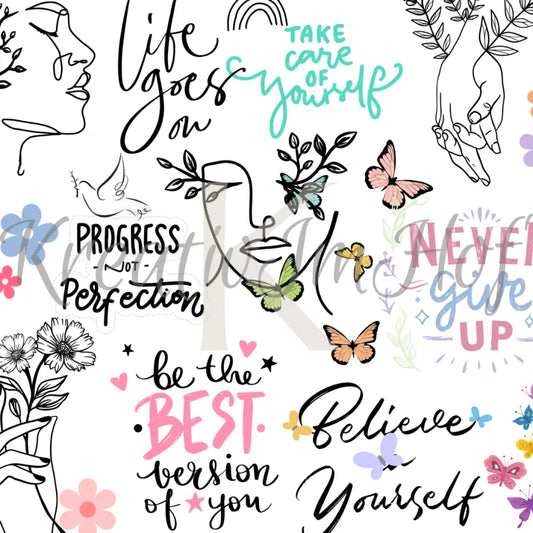 life
goes
on
TAKE
care
OF
yourself
PROGRESS
NOT
Perfection
NEVER
give
UP
be the
BEST
version
of you
Believe
Yourself
KreativeImHof
K